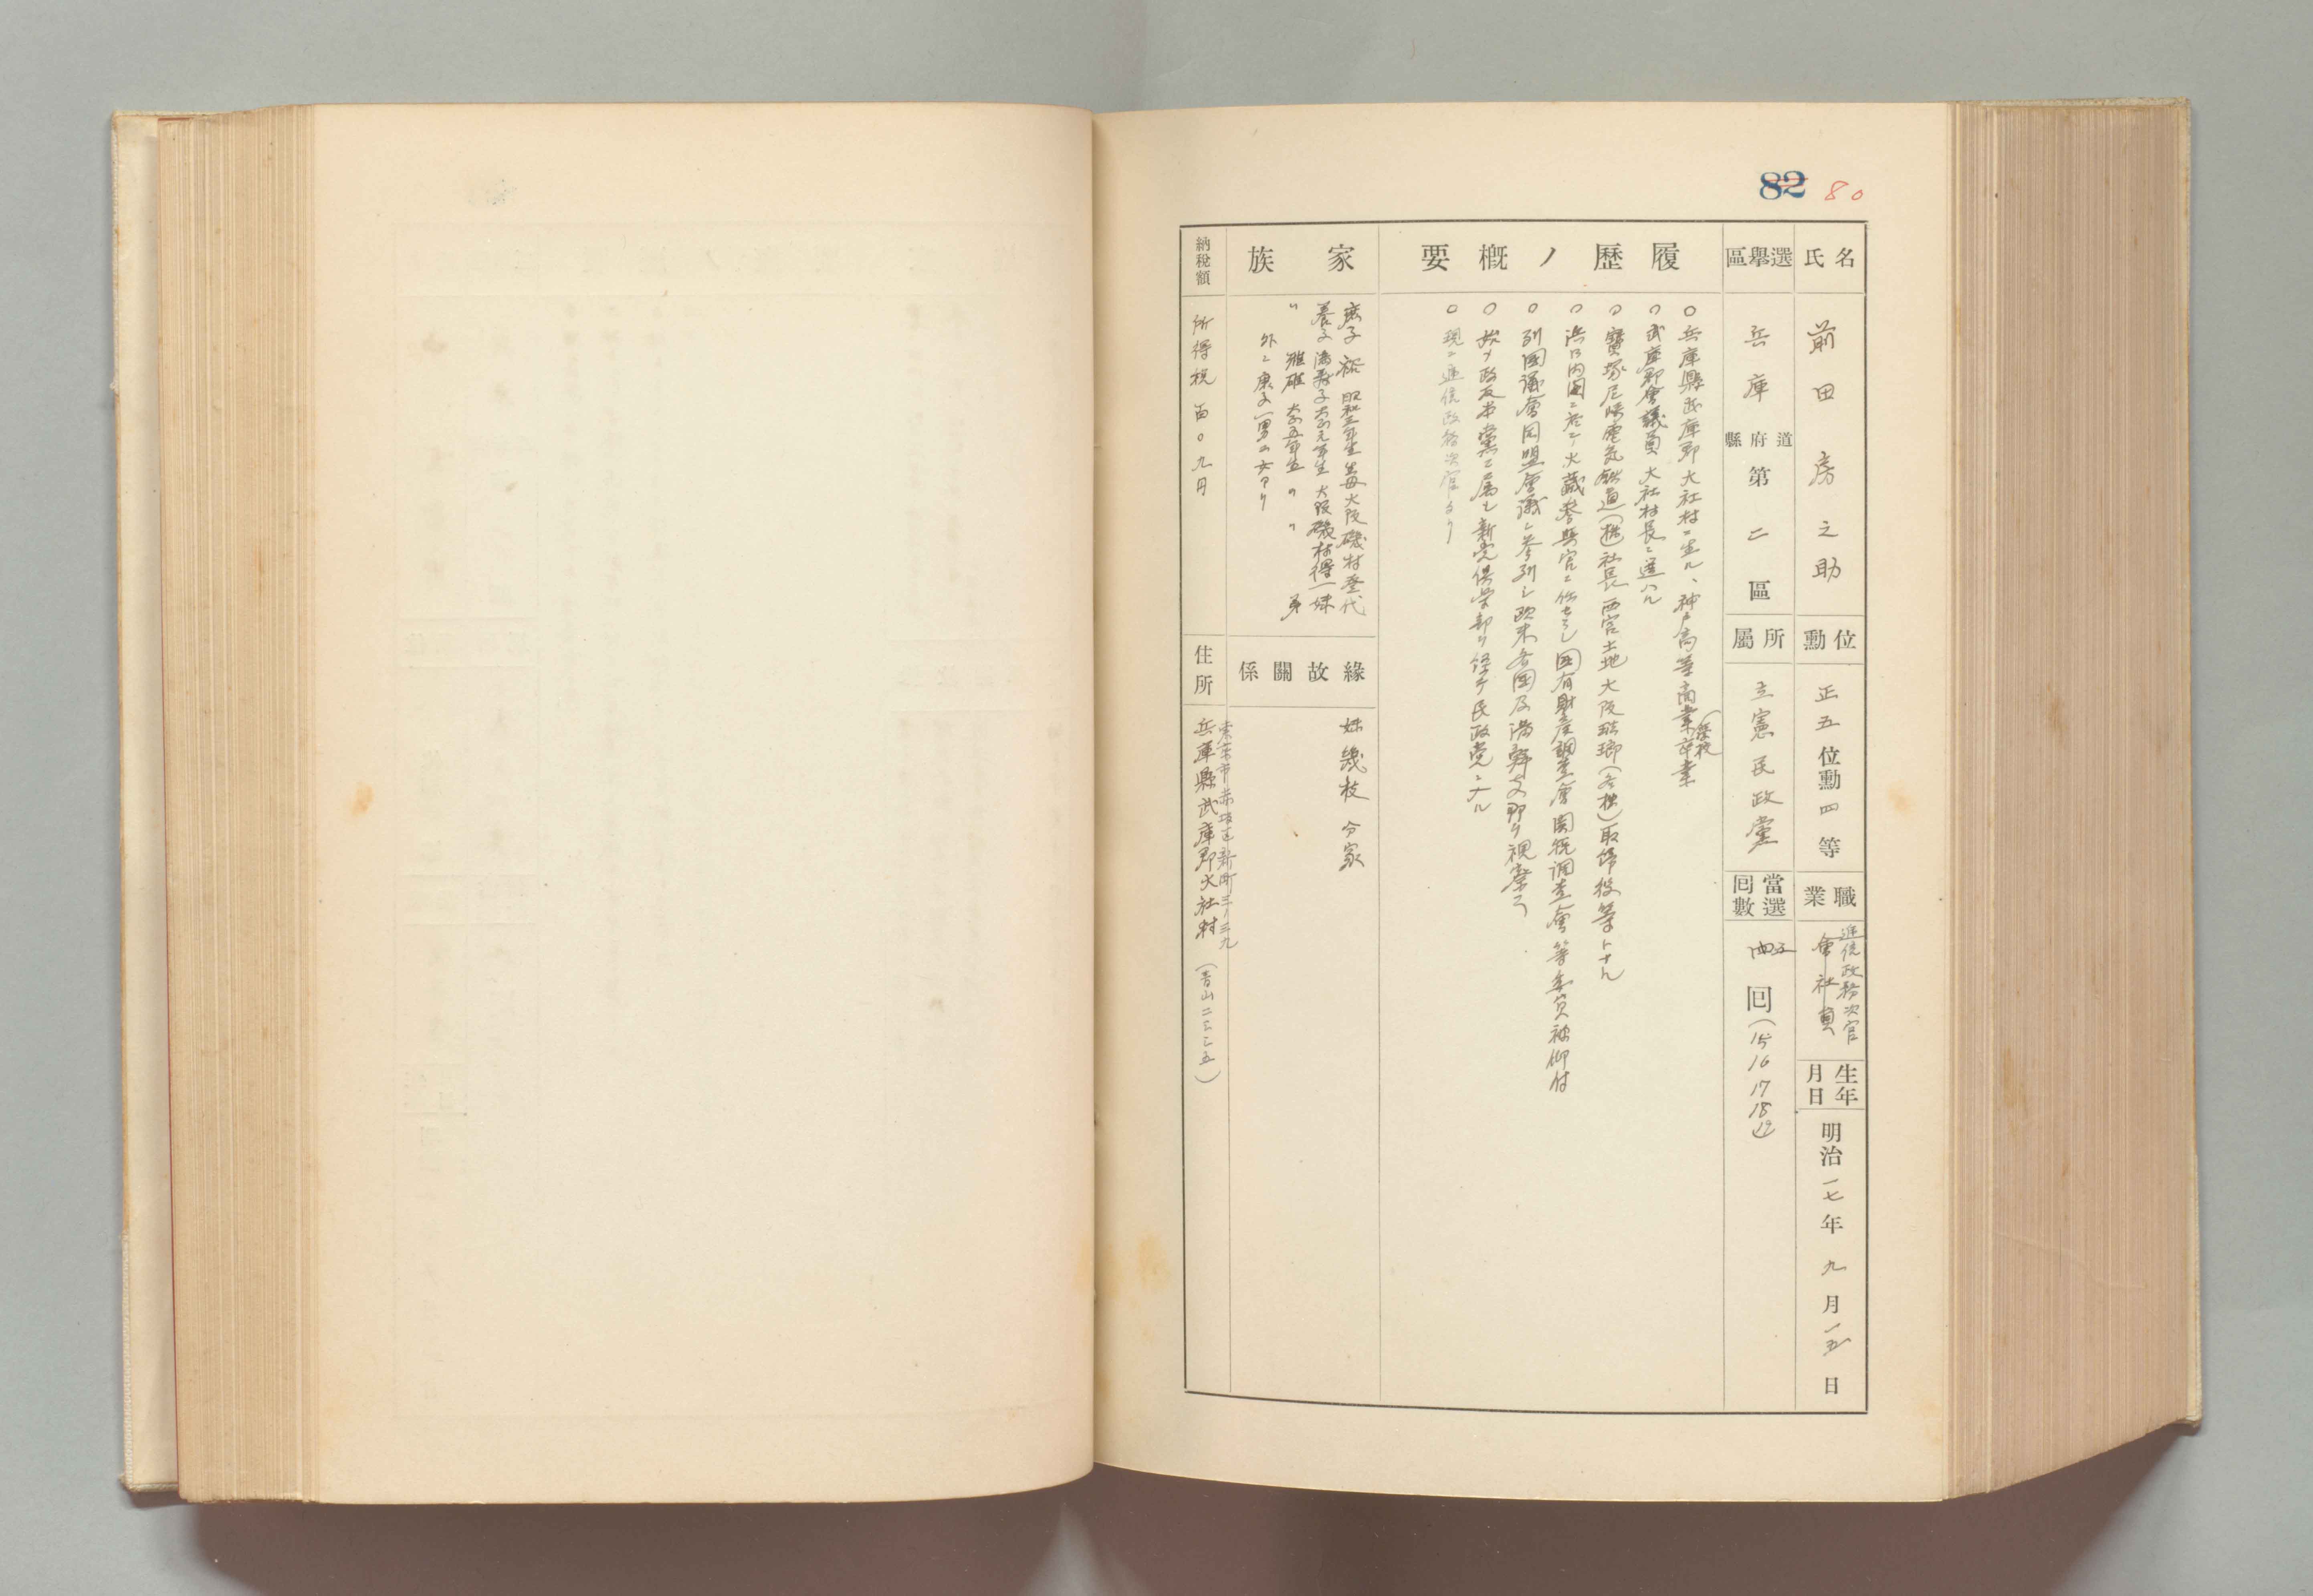 82 80
氏名
前田房之助
位勲
正五位勲四等
職業
逓信政務次官
會社員
生年月日
明治一七年九月一五日
選擧區
兵庫道府縣第二區
所屬
立憲民政黨
當選回數
四五回(15 16 17 18 19)
履歷ノ概要
○兵庫縣武庫郡大社村ニ生ル、神戸高等商業學校卒業
○武庫郡會議員大社村長ニ選ハル
○寶塚尼崎電気鉄道(株)社長西宮土地大阪琺瑯(各株)取締役等トナル
○濱口内閣ニ於テ大藏參與官ニ任セラレ国有財産調査會関税調査會等委員被仰付
○列國議會同盟會議ニ参列シ欧米各国及満鮮支那ヲ視察ス
○政友本黨ニ属シ新党倶楽部ヲ経テ民政党ニ入ル
○現ニ逓信政務次官タリ
家族
庶子 裕 昭和三年生 生母大阪磯村登代
養子 大正元年生 大阪磯村得一妹
〃 雅雄 大正五年生 〃 〃 弟
外ニ庶子一男二女アリ
緣故關係
妹幾枝分家
納稅額
所得税百〇九円
住所
東京市赤坂区新町三ノ三九
兵庫縣武庫郡大社村
(青山二三三五)